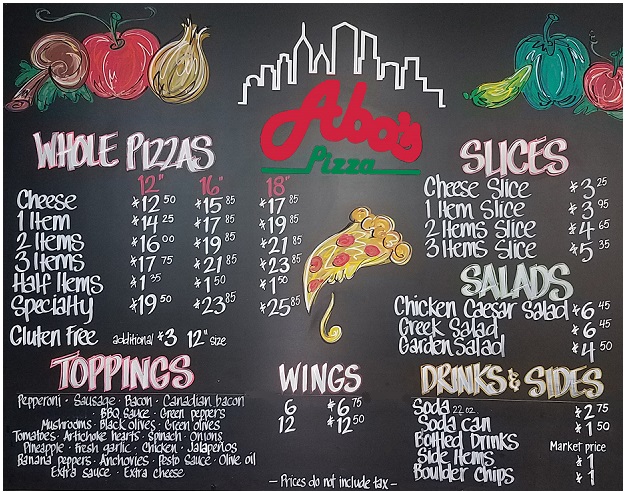 Abo's
Pizza
WHOLE PIZZAS
12" 16" 18"
Cheese $12.50 $15.85 $17.85
1 Item $14.25 $17.85 $19.85
2 Items $16.00 $19.85 $21.85
3 Items $17.75 $21.85 $23.85
Half Items $1.35 $1.50 $1.50
Specialty $19.50 $23.85 $25.85
Gluten Free additional $3 12" size
TOPPINGS
Pepperoni · Sausage · Bacon · Canadian bacon
· BBQ Sauce · Green peppers
Mushrooms · Black olives · Green olives
Tomatoes · Artichoke hearts · Spinach · Onions
Pineapple · Fresh garlic · Chicken · Jalapeños
Banana peppers · Anchovies · Pesto Sauce · Olive oil
Extra Sauce · Extra cheese
WINGS
6 $6.75
12 $12.50
– Prices do not include tax –
SLICES
Cheese Slice $3.25
1 Item Slice $3.95
2 Items Slice $4.65
3 Items Slice $5.35
SALADS
Chicken Caesar Salad $6.45
Greek Salad $6.45
Garden Salad $4.50
DRINKS & SIDES
Soda 22 oz. $2.75
Soda can $1.50
Bottled Drinks Market price
Side Items $1
Boulder Chips $1